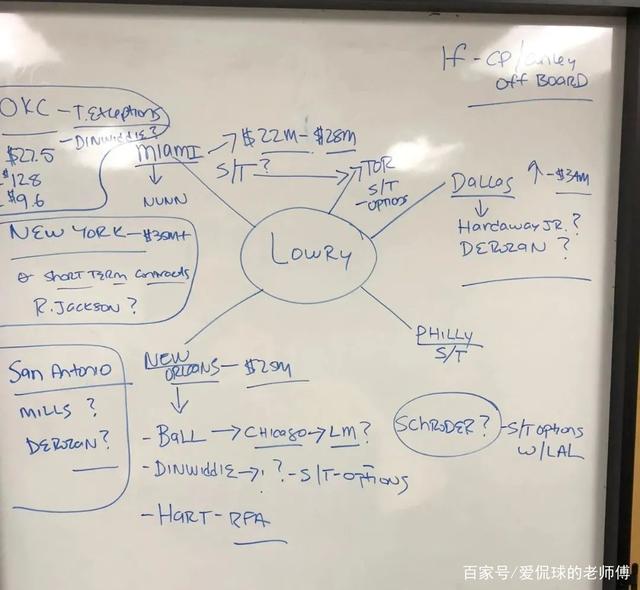 If - CP/
OFF BOARD
OKC - T. Exceptions
- DINWIDDIE?
$27.5
$12.8
$9.6
MIAMI → $22M - $28M
S/T? → TOR
S/T
- options
↓
NUNN
DALLAS ↑ - $34M
↓
Hardaway JR. ?
DEROZAN ?
NEW YORK - $35M+
SHORT TERM Contracts
R. JACKSON ?
LOWRY
PHILLY
S/T
San Antonio
MILLS ?
DEROZAN?
NEW
ORLEANS - $25M
↓
- BALL → CHICAGO → LM?
- DINWIDDIE → ! ? - S/T - OPTIONS
- HART - RFA
SCHRODER? - S/T options
W/LAL
百家号/爱侃球的老师傅